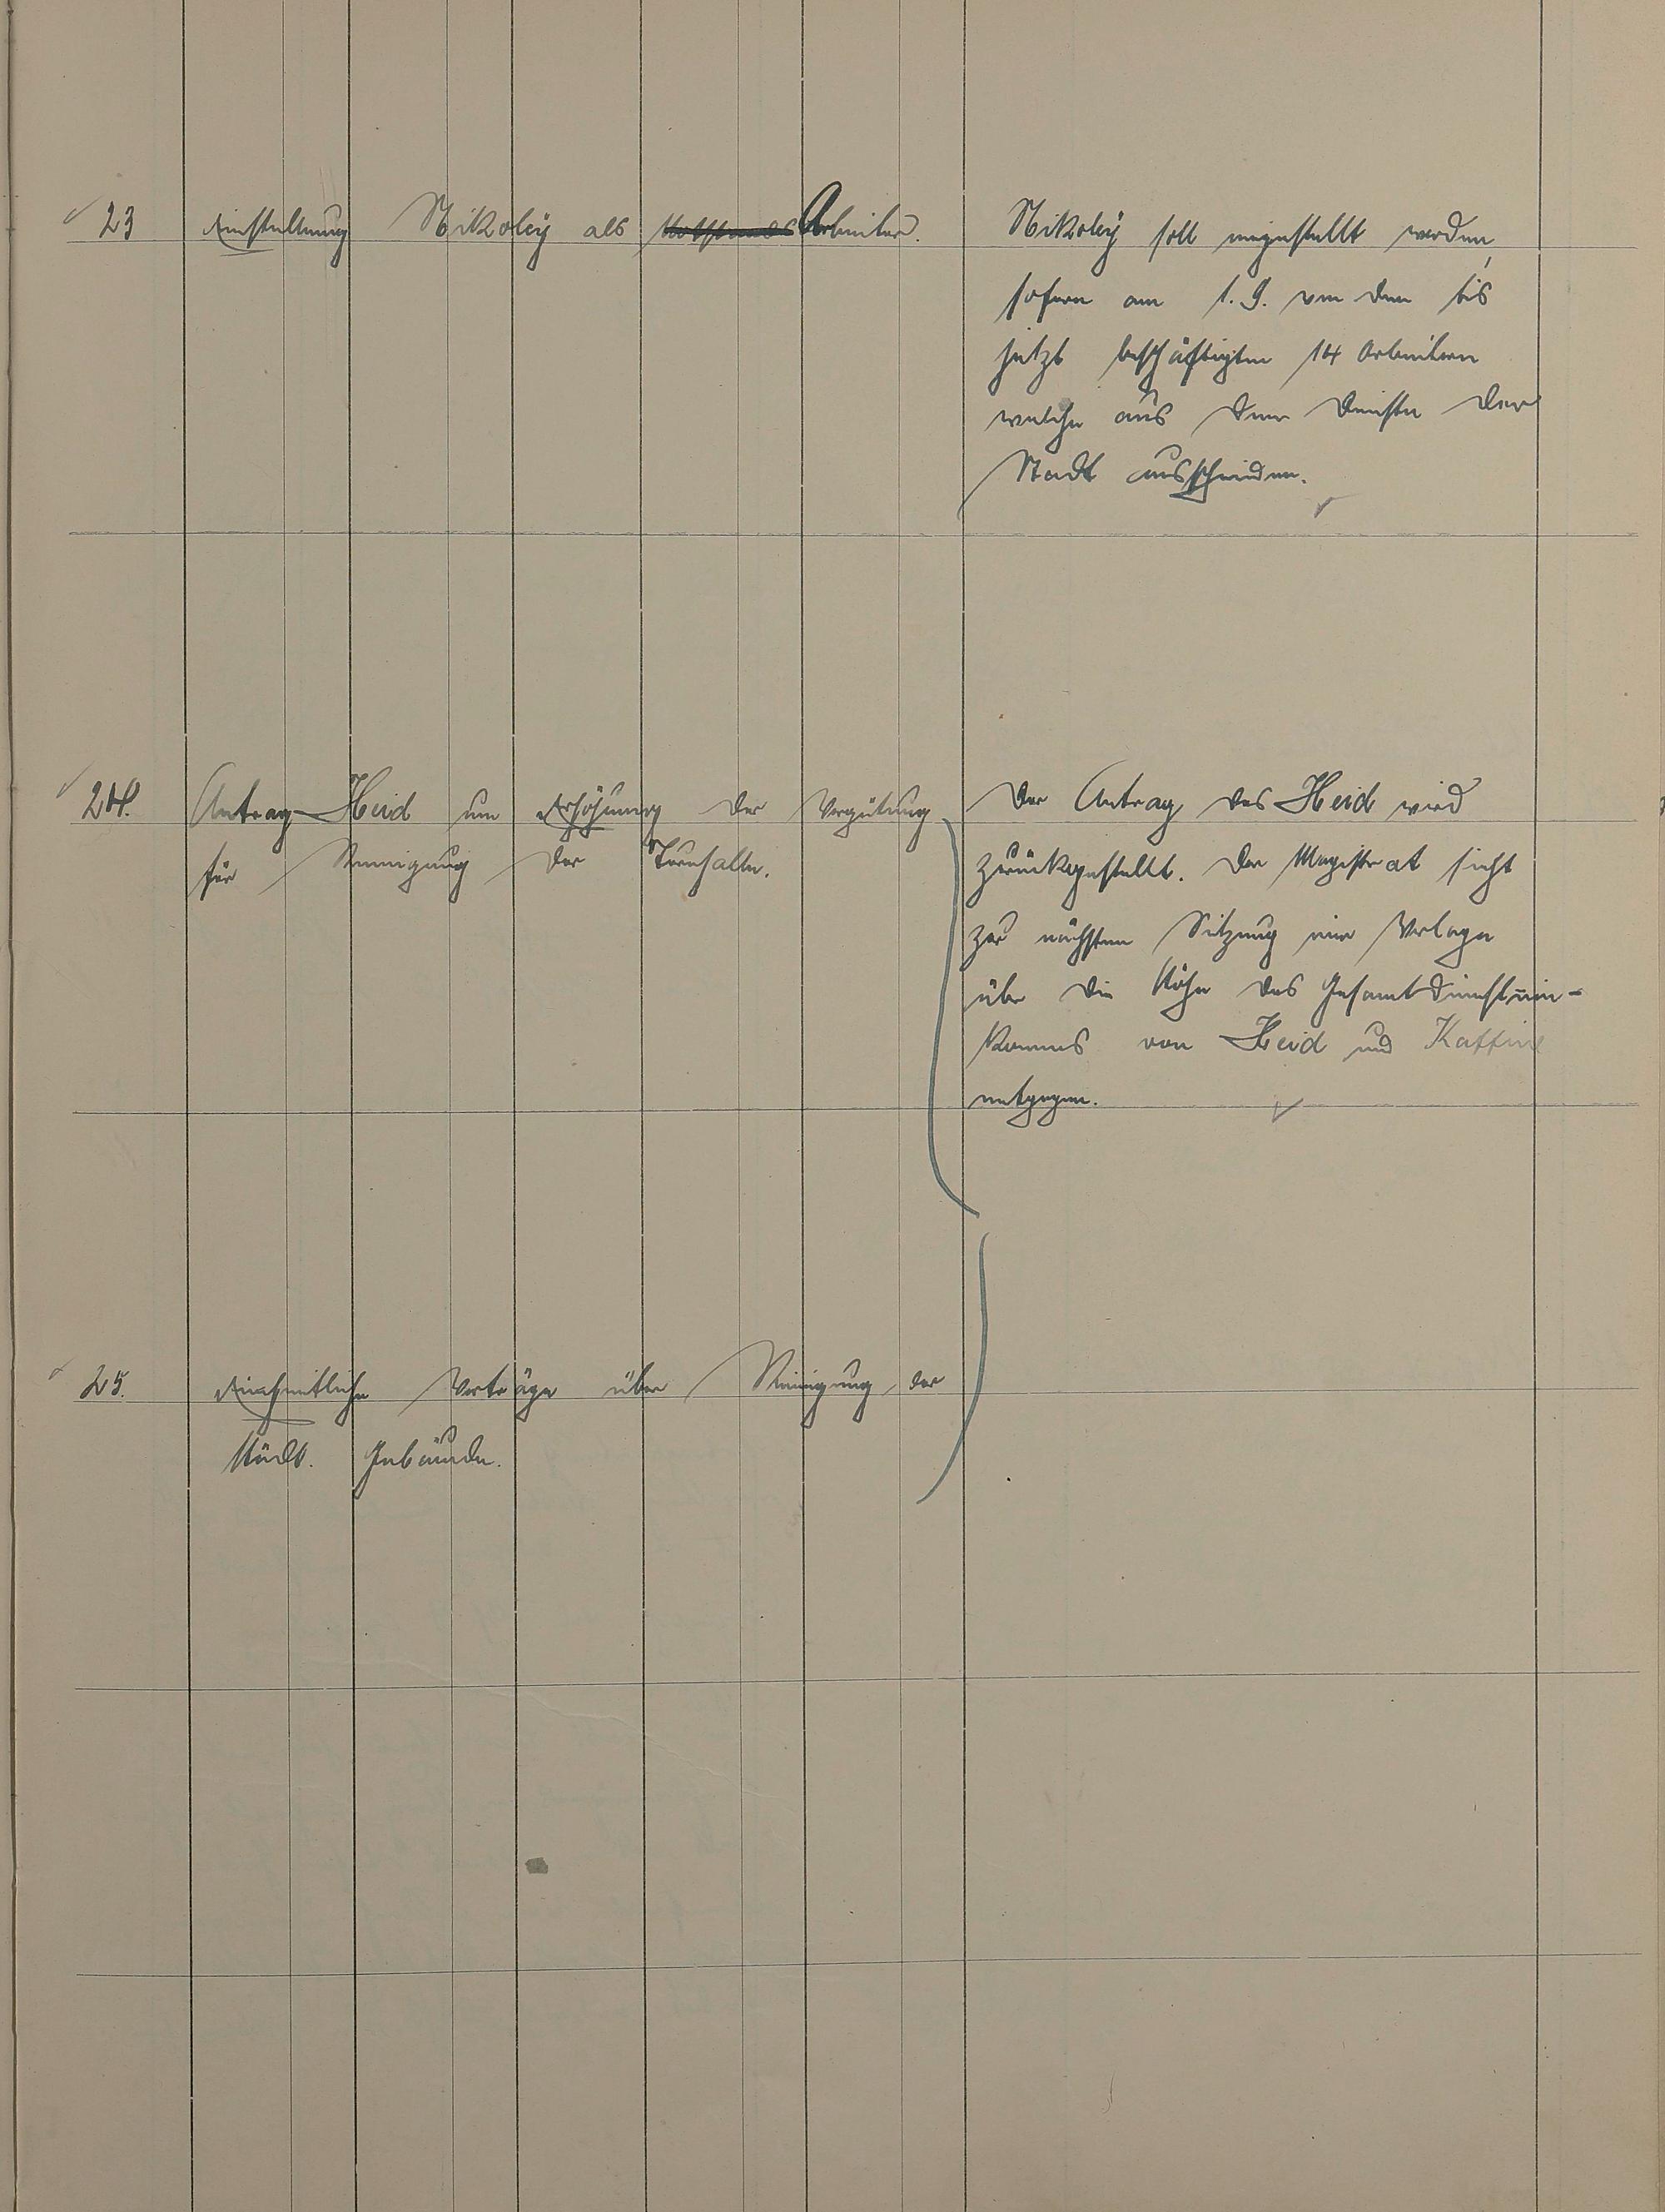 23 Einstellung Nikoley als Arbeiter.
Nikoley soll eingestellt werden,
sofern am 1. 9. von den bis
jetzt beschäftigten 14 Arbeitern
welche aus dem Dienste der
Stadt ausscheiden.
24. Antrag Heid um Erhöhung der Vergütung
für Reinigung der Turnhalle.
Der Antrag des Heid wird
zurückgestellt. Der Magistrat sieht
zur nächsten Sitzung einer Vorlage
über die Höhe des Gesamtdiensteein-
kommens von Heid und
entgegen.
25. Einheitliche Verträge über Reinigung der
städt. Gebäude.